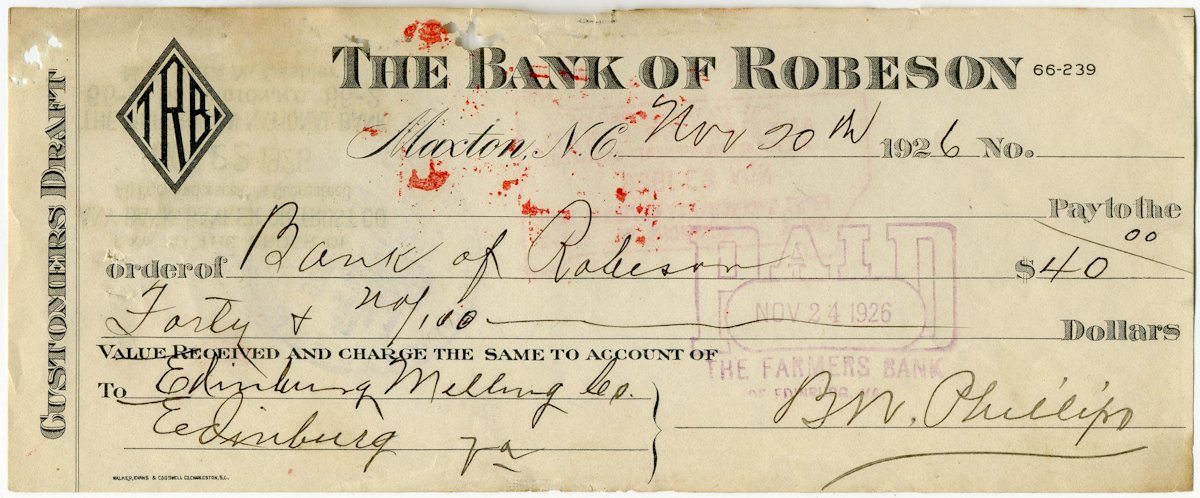 THE BANK OF ROBESON 66-239
TRB
CUSTOMERS DRAFT
Maxton, N.C. Nov 20th 1926 No.
Pay to the
order of Bank of Robeson $40 00
Forty & no/100 Dollars
PAID
NOV 24 1926
THE FARMERS BANK
OF EDINBURG, VA.
VALUE RECEIVED AND CHARGE THE SAME TO ACCOUNT OF
To Edinburg Milling Co.
Edinburg Va
B.W. Phillips
WALKER, EVANS & COGSWELL CO. CHARLESTON, S.C.